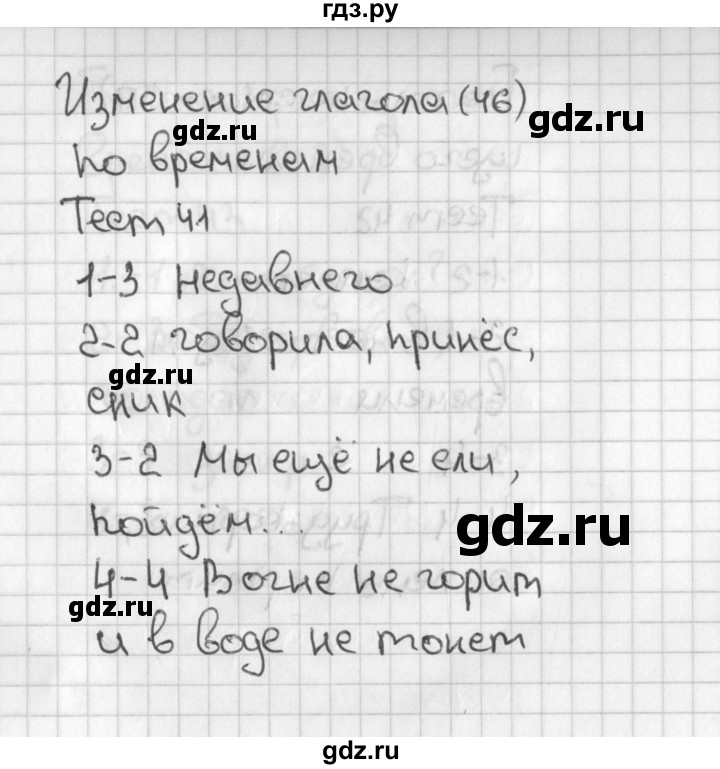 гдз.ру
Изменение глагола (46)
gdz.ru
gdz.ru
по временам
Тест 41
1-3 недавнего
2-2 говорила, принёс,
gdz.ru
сник
3-2 Мы ещё не ели,
пойдём...
gdz.ru
4-4 В огне не горит
gdz.ru
и в воде не тонет
gdz.ru